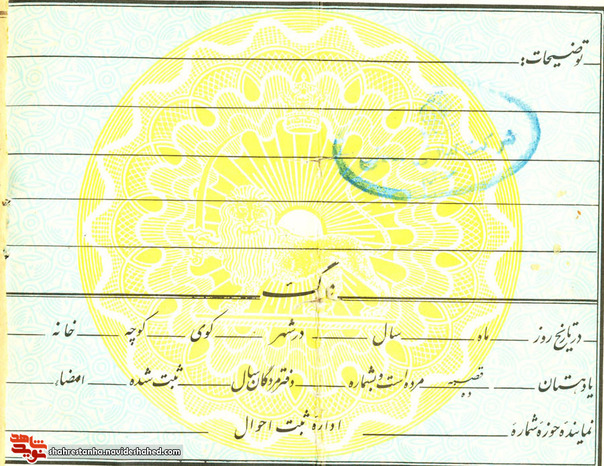 توضیحات:
مرگ
در تاریخ روز ماه سال در شهر کوی کوچه خانه
یا دبستان قصبه ده مرده است و بشماره دفتر مردگان سال ثبت شده امضاء
نماینده حوزه شماره اداره ثبت احوال
نوید شاهد
shahrestanha.navideshahed.com